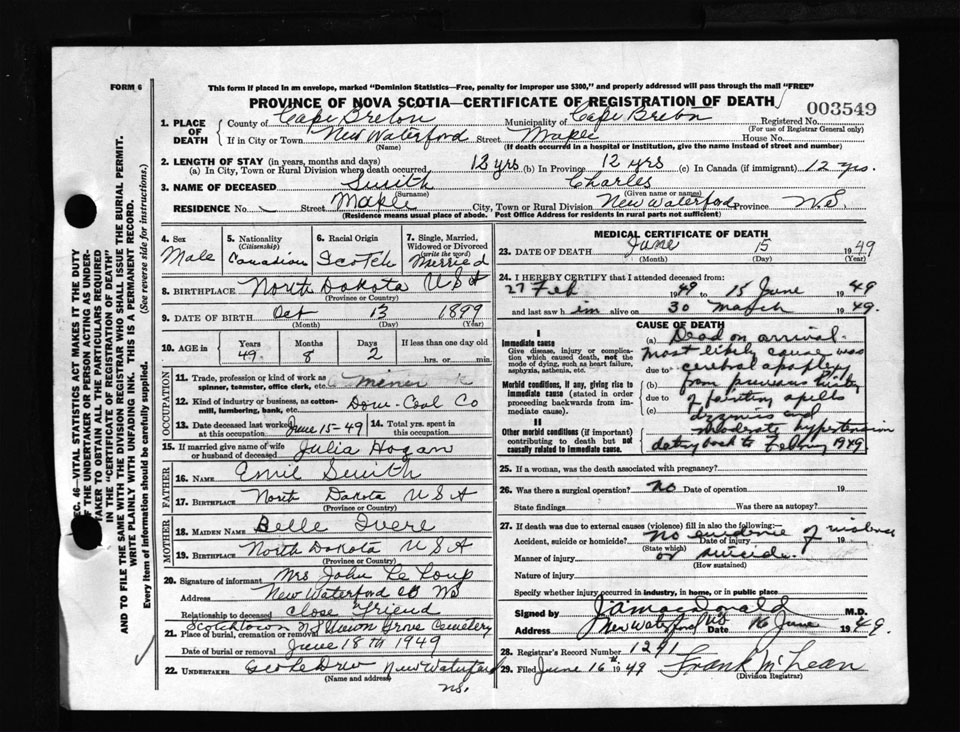 FORM 6
This form if placed in an envelope, marked "Dominion Statistics—Free, penalty for improper use $300," and properly addressed will pass through the mail "FREE"
PROVINCE OF NOVA SCOTIA—CERTIFICATE OF REGISTRATION OF DEATH
003549
1. PLACE OF DEATH
County of Cape Breton Municipality of Cape Breton Registered No.
(For use of Registrar General only)
If in City or Town New Waterford Street Maple House No.
(Name) (If death occurred in a hospital or institution, give the name instead of street and number)
2. LENGTH OF STAY (in years, months and days)
(a) In City, Town or Rural Division where death occurred 12 yrs (b) In Province 12 yrs (c) In Canada (if immigrant) 12 yrs.
3. NAME OF DECEASED Smith Charles
(Surname) (Given name or names)
RESIDENCE No. Street Maple City, Town or Rural Division New Waterford Province N.S
(Residence means usual place of abode. Post Office Address for residents in rural parts not sufficient)
4. Sex
Male
5. Nationality (Citizenship)
Canadian
6. Racial Origin
Scotch
7. Single, Married, Widowed or Divorced (write the word)
Married
8. BIRTHPLACE North Dakota USA
(Province or Country)
9. DATE OF BIRTH Oct 13 1899
(Month) (Day) (Year)
10. AGE in Years Months Days If less than one day old
49. 8 2 hrs. or min.
OCCUPATION
11. Trade, profession or kind of work as spinner, teamster, office clerk, etc. miner
12. Kind of industry or business, as cotton-mill, lumbering, bank, etc. Dom-Coal Co
13. Date deceased last worked at this occupation June 15-49 14. Total yrs. spent in this occupation
15. If married give name of wife or husband of deceased Julia Hogan
FATHER
16. NAME Emil Smith
17. BIRTHPLACE North Dakota USA
(Province or Country)
MOTHER
18. MAIDEN NAME Belle
19. BIRTHPLACE North Dakota USA
(Province or Country)
20. Signature of informant Mrs John Le Loup
Address New Waterford CB NS
Relationship to deceased Close Friend
Scotchtown NS Grove Cemetery
21. Place of burial, cremation or removal
Date of burial or removal June 18TH 1949
22. UNDERTAKER New Waterford
(Name and address) NS.
MEDICAL CERTIFICATE OF DEATH
23. DATE OF DEATH June 15 1949
(Month) (Day) (Year)
24. I HEREBY CERTIFY that I attended deceased from:
27 Feb 1949 to 15 June 1949
and last saw him alive on 30 March 1949.
CAUSE OF DEATH
I
Immediate cause
Give disease, injury or complication which caused death, not the mode of dying, such as heart failure, asphyxia, asthenia, etc.
Morbid conditions, if any, giving rise to immediate cause (stated in order proceeding backwards from immediate cause).
II
Other morbid conditions (if important) contributing to death but not causally related to immediate cause.
(a) Dead on arrival.
most likely cause was
due to cerebral apoplexy
(b) from previous history
due to of fainting spells
(c) dizziness and
moderate hypertension
dating back to Feb 1949
25. If a woman, was the death associated with pregnancy?
26. Was there a surgical operation? no Date of operation 19
State findings Was there an autopsy?
27. If death was due to external causes (violence) fill in also the following:—
Accident, suicide or homicide? no evidence of violence
(State which) Date of injury 19
Manner of injury or suicide.
(How sustained)
Nature of injury
Specify whether injury occurred in industry, in home, or in public place
Signed by J A Macdonald M.D.
Address New Waterford NS Date 16 June 1949.
28. Registrar's Record Number 1291
29. Filed June 16th 1949 Frank McLean
(Division Registrar)
SEC. 46—VITAL STATISTICS ACT MAKES IT THE DUTY
OF THE UNDERTAKER OR PERSON ACTING AS UNDERTAKER TO OBTAIN ALL THE PARTICULARS REQUIRED
IN THE "CERTIFICATE OF REGISTRATION OF DEATH"
AND TO FILE THE SAME WITH THE DIVISION REGISTRAR WHO SHALL ISSUE THE BURIAL PERMIT.
WRITE PLAINLY WITH UNFADING INK. THIS IS A PERMANENT RECORD.
Every item of information should be carefully supplied. (See reverse side for instructions.)